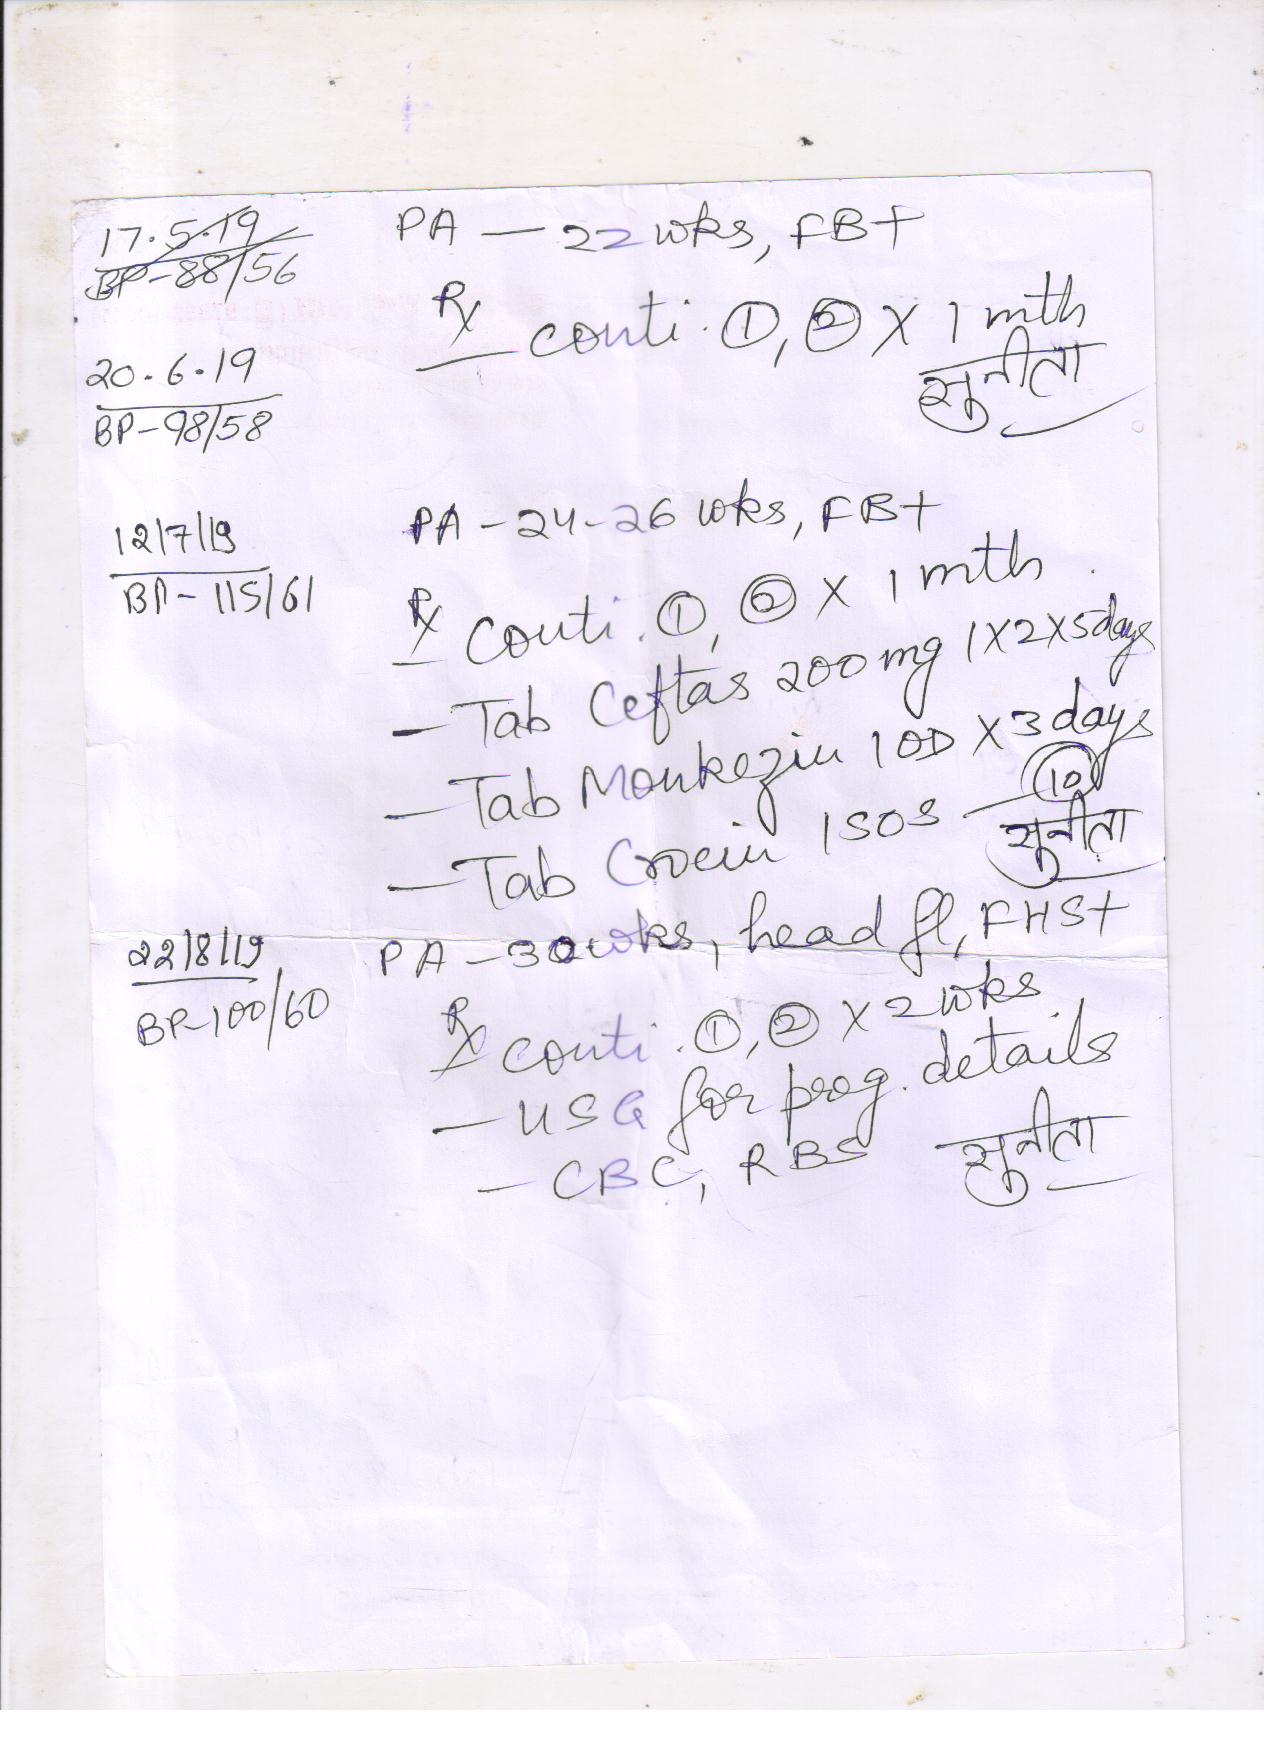 17.5.19
BP-88/56
PA - 22 wks, FB+
Rx conti. ①, ② X 1 mth
सुनीता
20.6.19
BP-98/58
12/7/19
BP- 115/61
PA - 24-26 wks, FB+
Rx conti. ①, ② X 1 mth
- Tab Ceftas 200mg 1X2X5days
- Tab Monkezin 1 OD X 3 days
- Tab Crocin 1 SOS - ⑩
सुनीता
22/8/19
BP-100/60
PA - 30 wks, head fl, FHS+
Rx conti. ①, ② X 2 wks
- USG for preg. details
- CBC, RBS
सुनीता